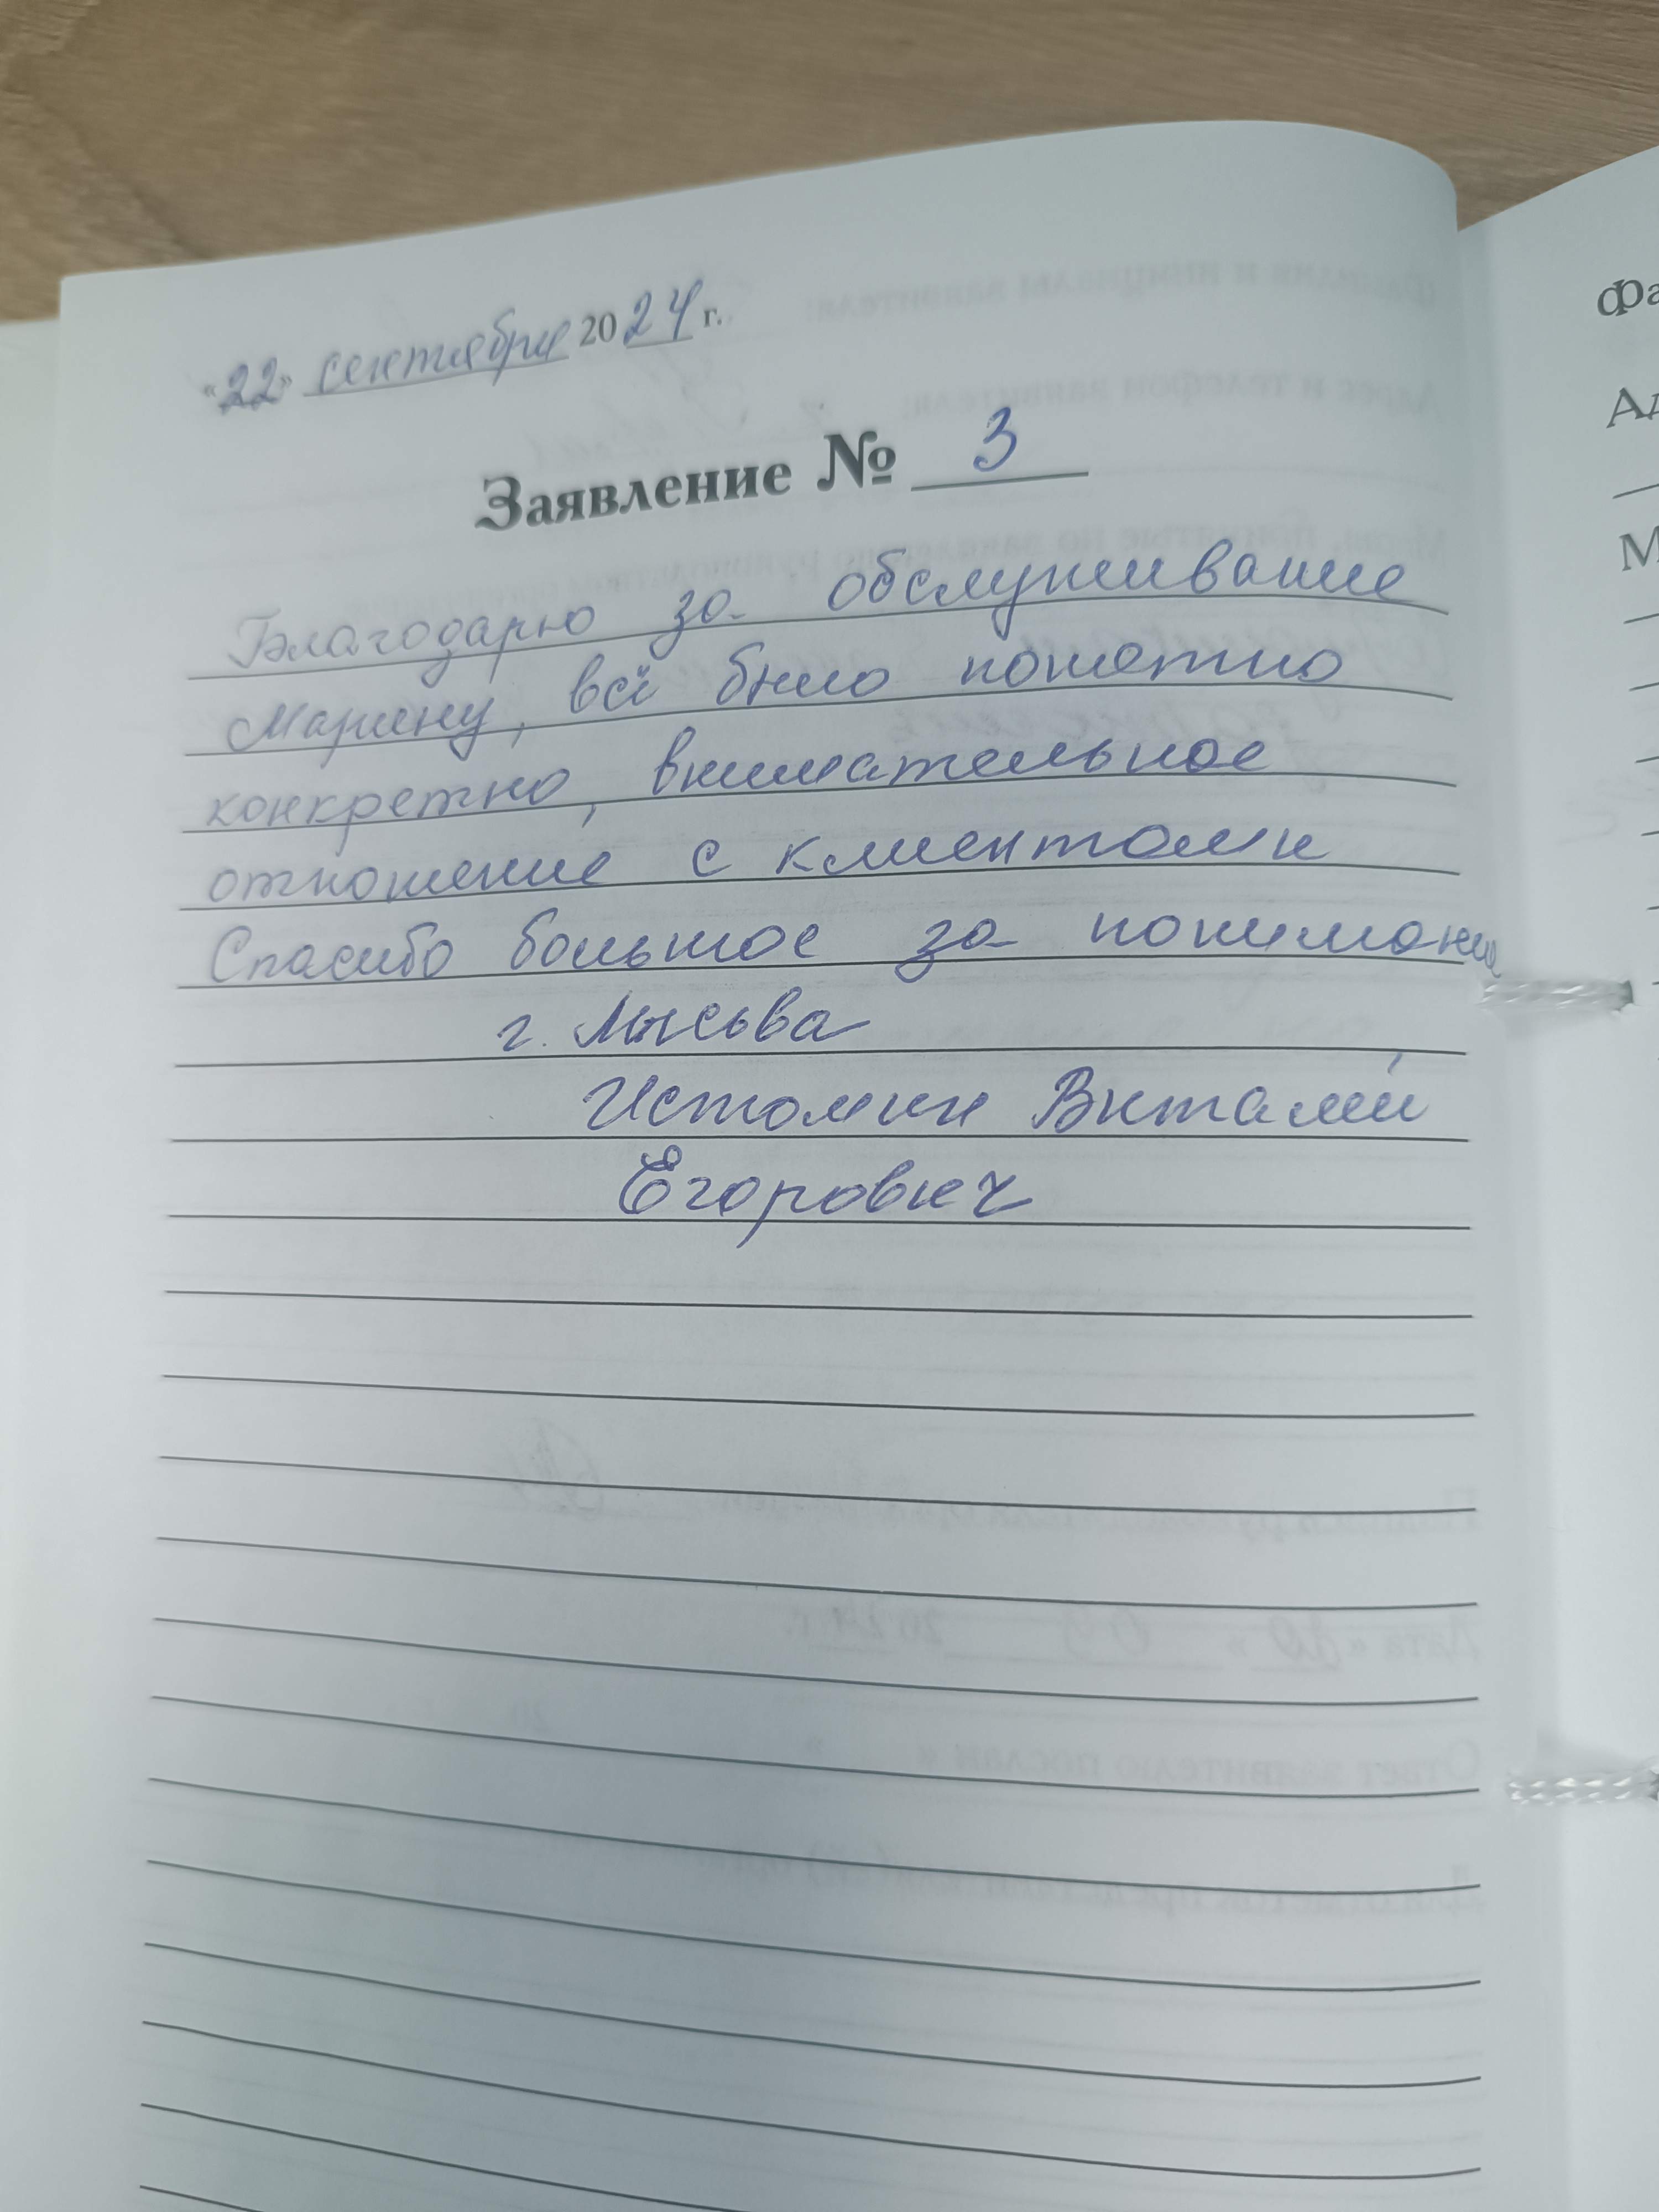 «22» сентября 2024 г.
Заявление № 3
Благодарю за обслуживание
Марину, всё было понятно
конкретно, внимательное
отношение с клиентами
Спасибо большое за понимание
г. Лысьва
Истомин Виталий
Егорович
Фа
Ад
М